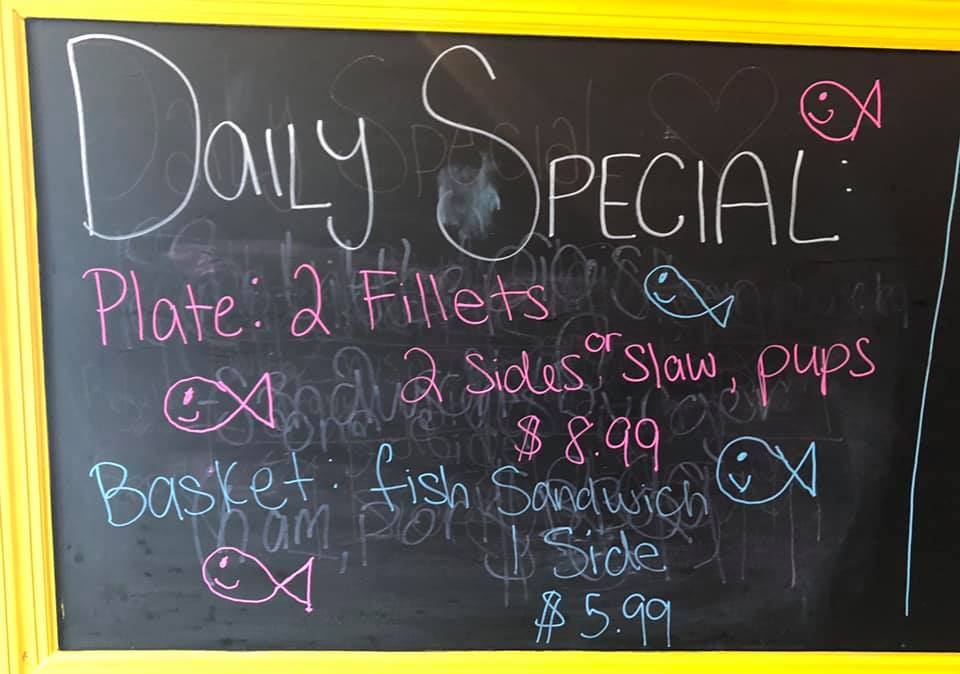 Daily Special:
Plate: 2 Fillets
2 Sides, or Slaw, pups
$8.99
Basket: fish Sandwich
1 Side
$5.99